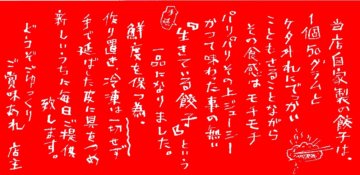 当店自家製の餃子は、
1個50グラムと
ケタ外れにでかい
こともさることながら
その食感はモチモチ
パリパリその上ジューシー
かつて味わった事の無い
『生きている餃子』という
一品になりました。
鮮度を保つ為。
作り置き冷凍一切せず
手で延ばした皮に具をつめ
新しいうちに毎日ご提供
致します。
どうぞごゆっくり
ご賞味あれ 店主